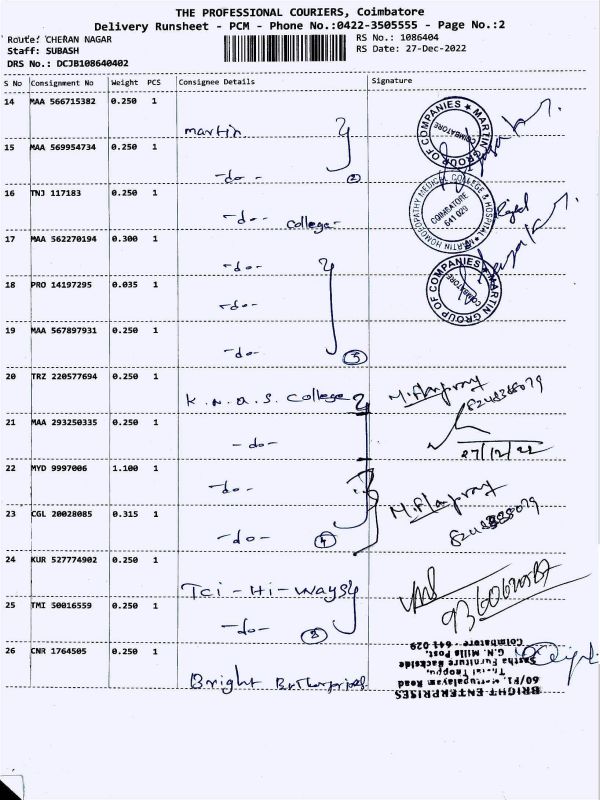 THE PROFESSIONAL COURIERS, Coimbatore
Delivery Runsheet - PCM - Phone No.:0422-3505555 - Page No.:2
Route: CHERAN NAGAR
RS No.: 1086404
Staff: SUBASH
RS Date: 27-Dec-2022
DRS No.: DCJB108640402
S No Consignment No Weight PCS Consignee Details Signature
14 MAA 566715382 0.250 1
martin
15 MAA 569954734 0.250 1
-do- 2
16 TNJ 117183 0.250 1
-do- College-
17 MAA 562270194 0.300 1
-do-
18 PRO 14197295 0.035 1
-do-
19 MAA 567897931 0.250 1
-do- 3
MARTIN GROUP OF COMPANIES
COIMBATORE
MARTIN HOMOEOPATHY MEDICAL COLLEGE & HOSPITAL
COIMBATORE
641 029
MARTIN GROUP OF COMPANIES
COIMBATORE
20 TRZ 220577694 0.250 1
K.N.G.S. College
21 MAA 293250335 0.250 1
-do-
27/12/22
22 MYD 9997006 1.100 1
-do-
23 CGL 20028085 0.315 1
-do- 4
24 KUR 527774902 0.250 1
Tci-Hi-ways
25 TMI 50016559 0.250 1
-do- 2
26 CNR 1764505 0.250 1
Bright Enterprises
BRIGHT ENTERPRISES
60/F1, Road
Sastha Furniture Backside
G.N. Mills Post,
Coimbatore - 641 029